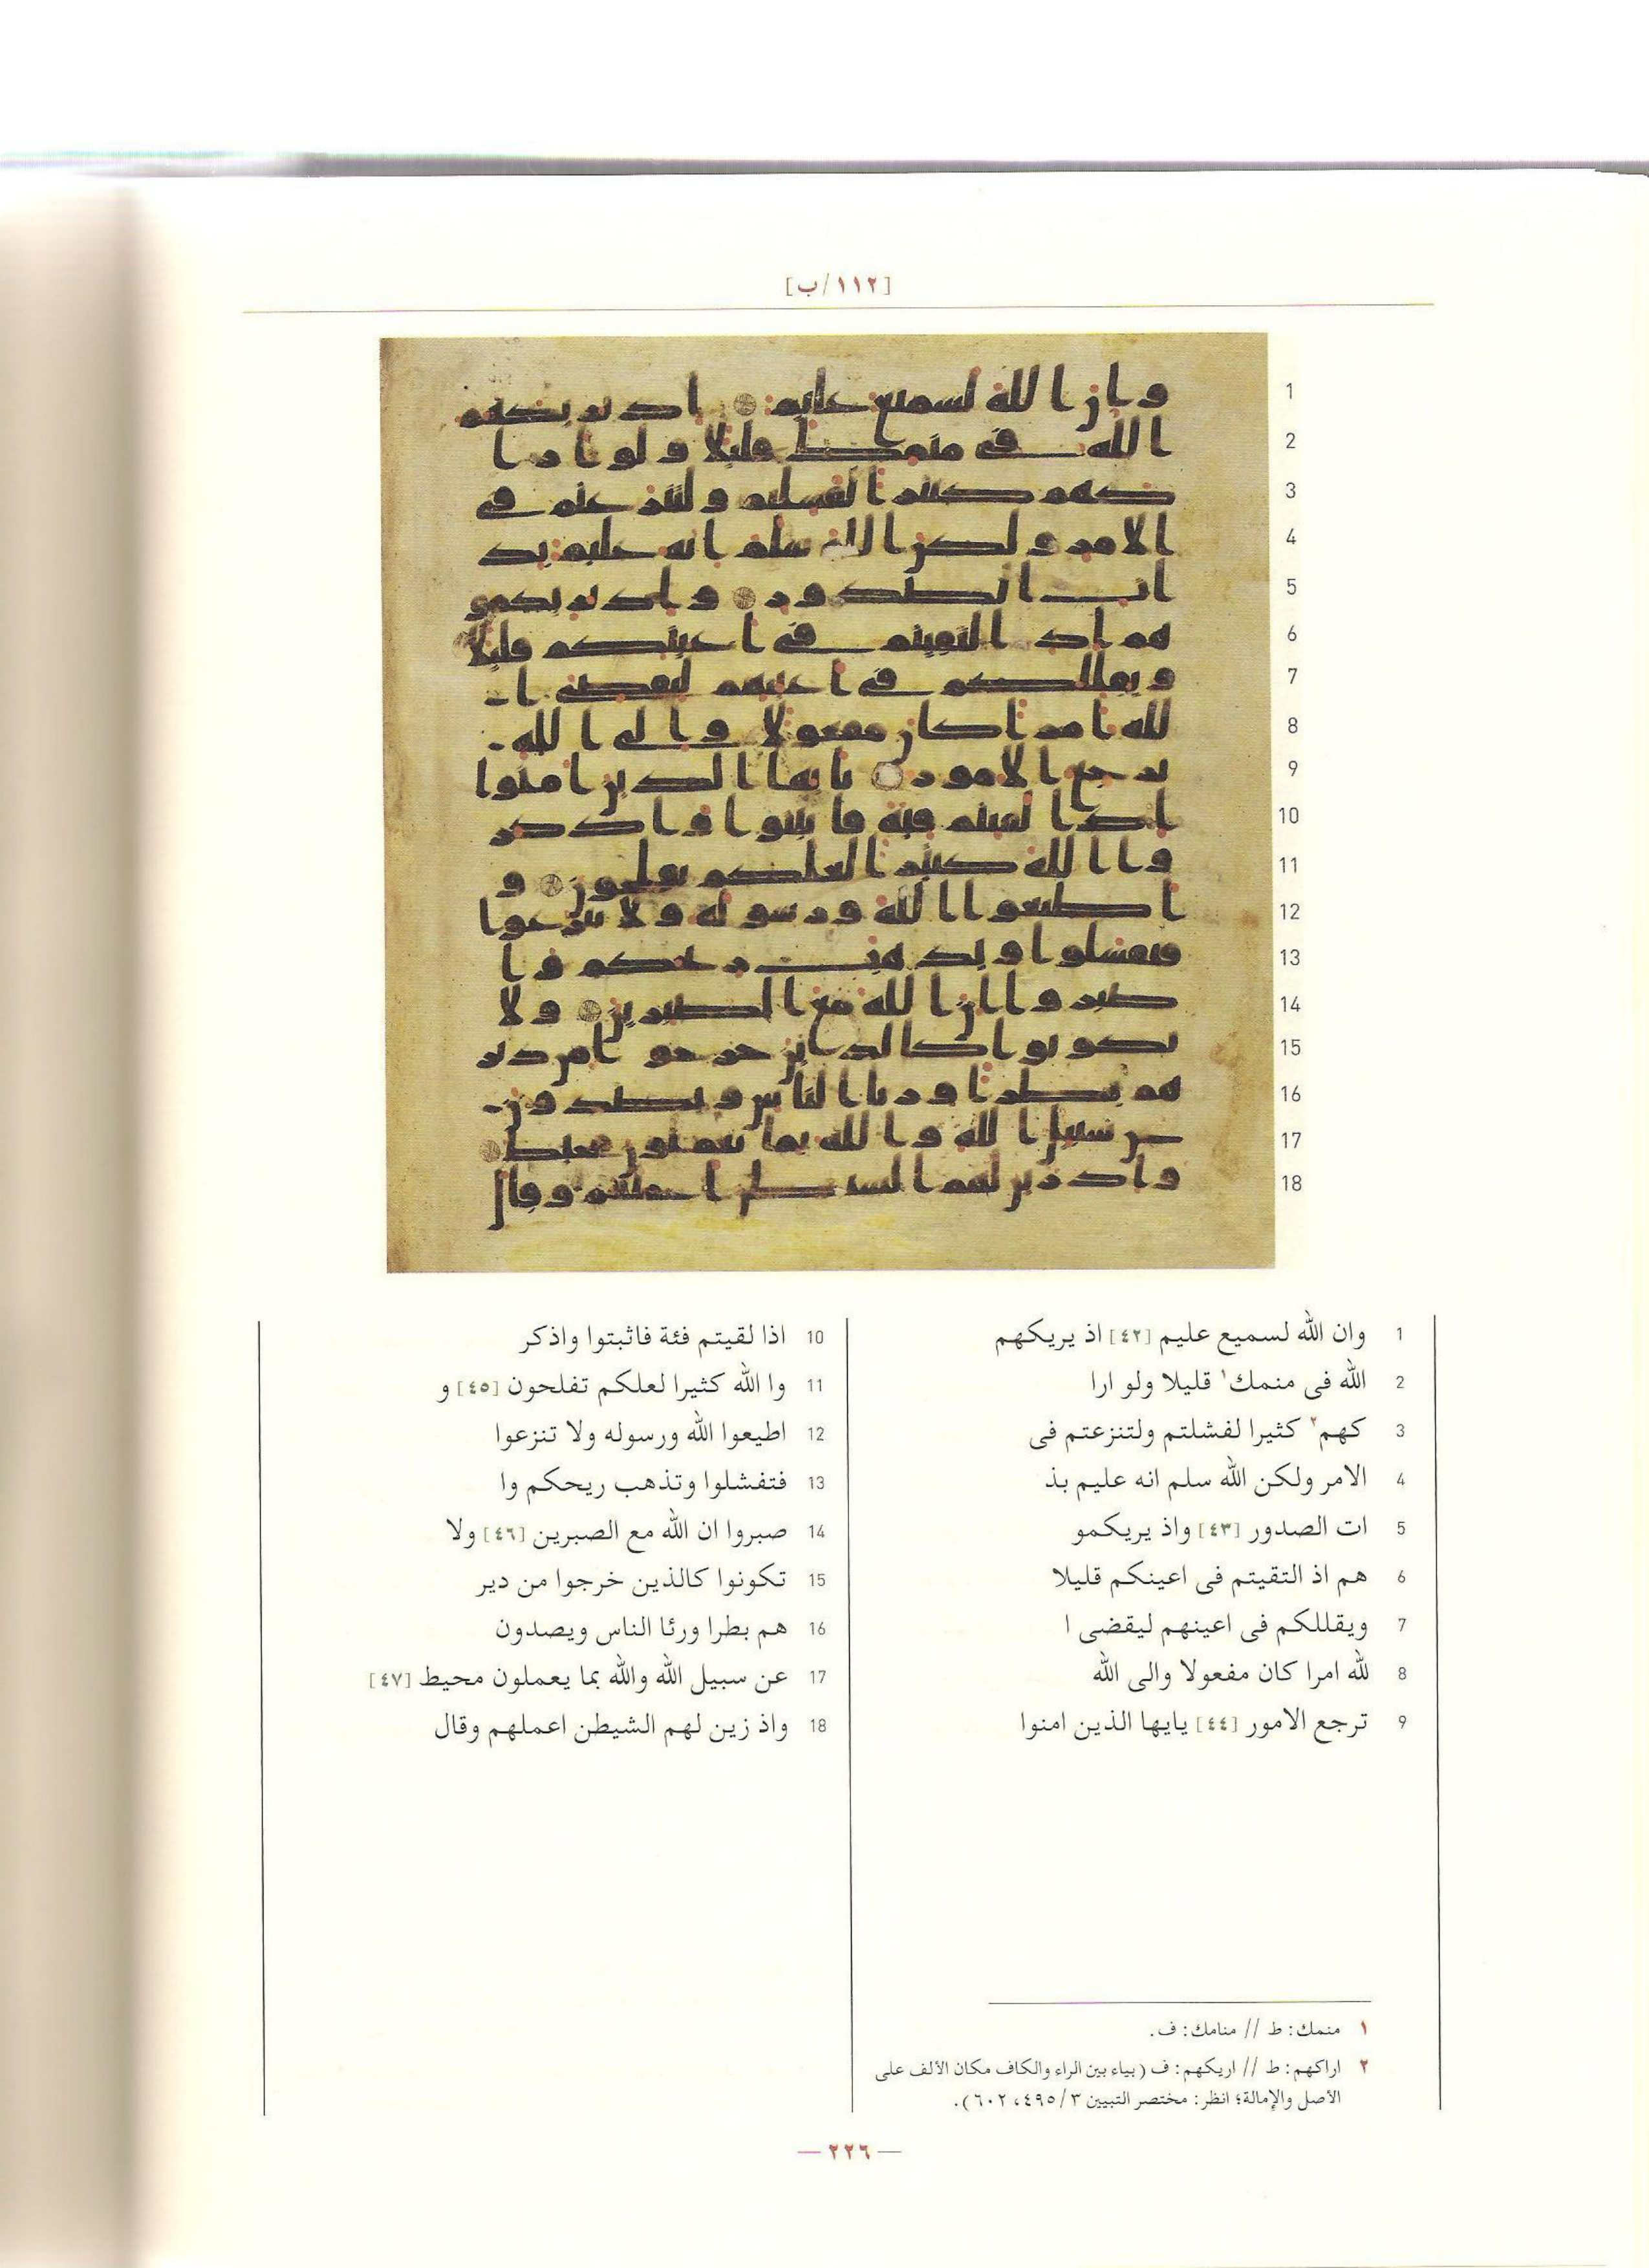 [١١٢/ب]
1 وان الله لسميع عليم [٤٢] اذ يريكهم
2 الله فى منمك١ قليلا ولو ارا
3 كهم٢ كثيرا لفشلتم ولتنزعتم فى
4 الامر ولكن الله سلم انه عليم بذ
5 ات الصدور [٤٣] واذ يريكمو
6 هم اذ التقيتم فى اعينكم قليلا
7 ويقللكم فى اعينهم ليقضى ا
8 لله امرا كان مفعولا والى الله
9 ترجع الامور [٤٤] يايها الذين امنوا
10 اذا لقيتم فئة فاثبتوا واذكر
11 وا الله كثيرا لعلكم تفلحون [٤٥] و
12 اطيعوا الله ورسوله ولا تنزعوا
13 فتفشلوا وتذهب ريحكم وا
14 صبروا ان الله مع الصبرين [٤٦] ولا
15 تكونوا كالذين خرجوا من دير
16 هم بطرا ورئا الناس ويصدون
17 عن سبيل الله والله بما يعملون محيط [٤٧]
18 واذ زين لهم الشيطن اعملهم وقال
١ منمك: ط // منامك: ف.
٢ اراكهم: ط // اريكهم: ف (بياء بين الراء والكاف مكان الألف على
الأصل والإمالة؛ انظر: مختصر التبيين ٣/ ٤٩٥، ٦٠٢).
— ٢٢٦ —